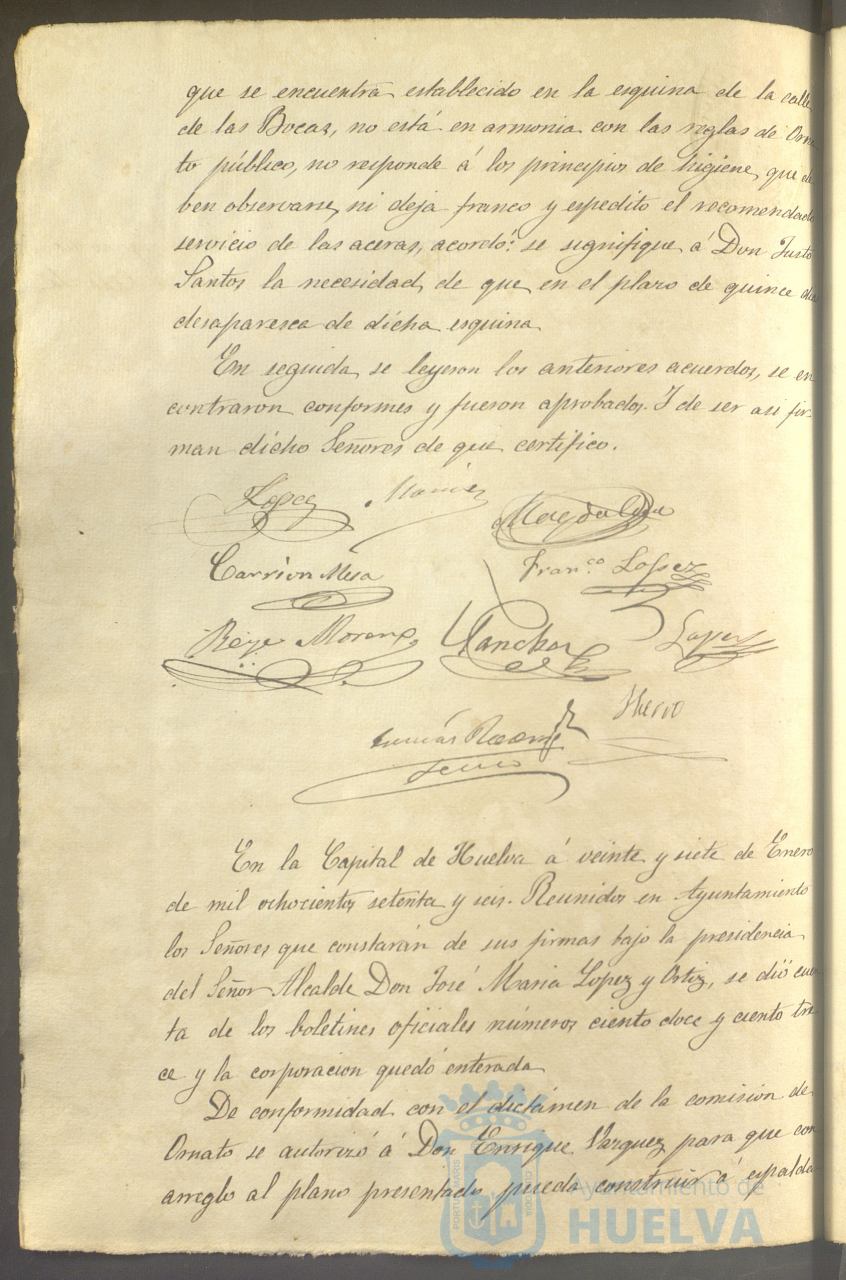 que se encuentra establecido en la esquina de la calle
de las Bocas, no está en armonia con las reglas de Orna
to público, no responde á los principios de higiene, que de
ben observarse, ni deja franco y espedito el recomendado
servicio de las aceras, acordó: se signifique á Don Justo
Santos la necesidad, de que en el plazo de quince dias
desaparesca de dicha esquina
En seguida, se leyeron los anteriores acuerdos, se en
contraron conformes y fueron aprobados. I de ser asi fir-
man dicho Señores de que certifico.
Lopez
Magdalena
Carrion Mesa Franco Lopez
Moreno Sanchez Lopez
En la Capital de Huelva á veinte y siete de Enero
de mil ochocientos setenta y seis. Reunidos en Ayuntamiento
los Señores que constarán de sus firmas bajo la presidencia
del Señor Alcalde Don José Maria Lopez y Ortiz, se dió cuen
ta de los boletines oficiales números ciento doce y ciento tre
ce y la corporacion quedó enterada
De conformidad con el dictámen de la comisión de
Ornato se autorizó á Don Enrique Vazquez para que con
arreglo al plano presentado pueda construir á espalda
Ayuntamiento de
HUELVA